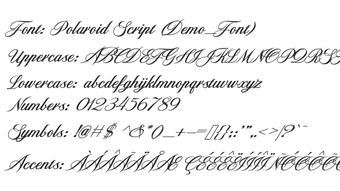 Font: Polaroid Script (Demo_Font)
Uppercase: ABCDEFGHIJKLMNOPQRS
Lowercase: abcdefghijklmnopqrstuvwxyz
Numbers: 0123456789
Symbols: !@#$ ^&*()_+-=[]{};:'",.<>|?`~
Accents: ÀÁÂÃÄÅÆ ÇÈÉÊËÌÍÎÏÑÒÓÔÕÖ